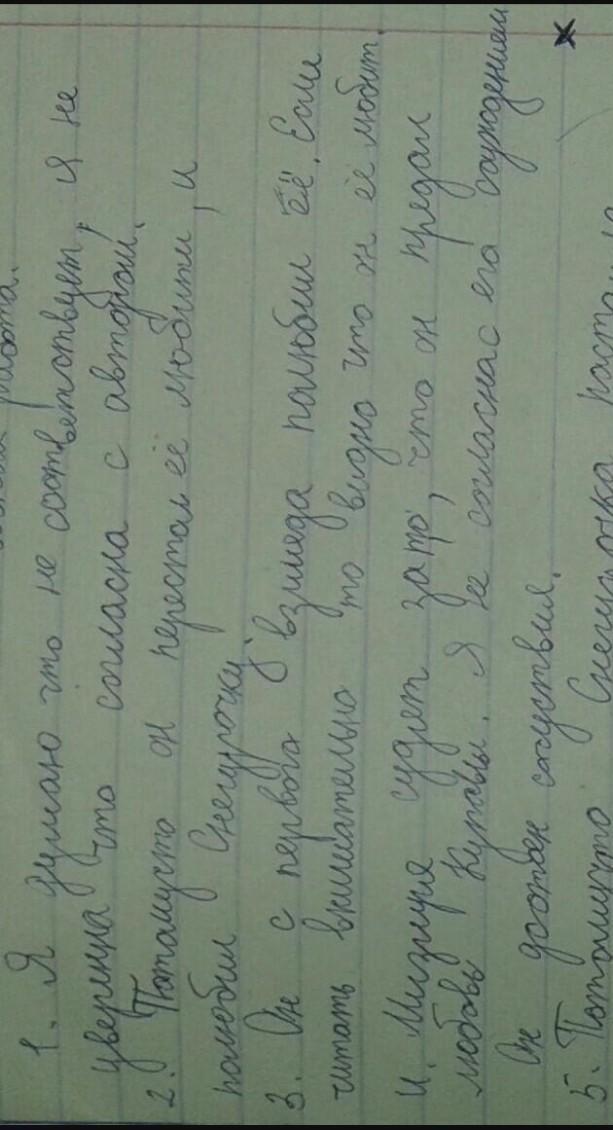 работа.
1. Я думаю что не соответствует, я не
уверенна что согласна с автором.
2. Потомусто он перестал её любити, и
полюбил Снегурочку.
3. Он с первого взгляда полюбил её. Если
читать внимательно то видно что он её любит.
4. Мизгиря судят зато, что он предал
любовь Купавы. Я не согласнас его осуждением
Он достоен сочуствия.
5. Потомичто Снегурочка